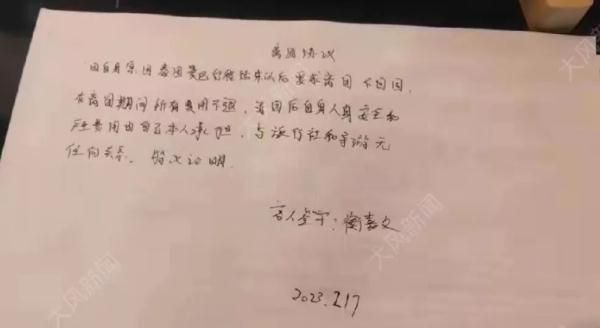 离团协议
自身原因 行程结束以后要求离团 不回国,
在离团期间所有费用不退, 离团后自身人身安全和
费用由自己本人承担, 与旅行社和导游无
任何关系. 特此证明.
客人签字:
2023.2.17
大风新闻
大风新闻
大风新闻